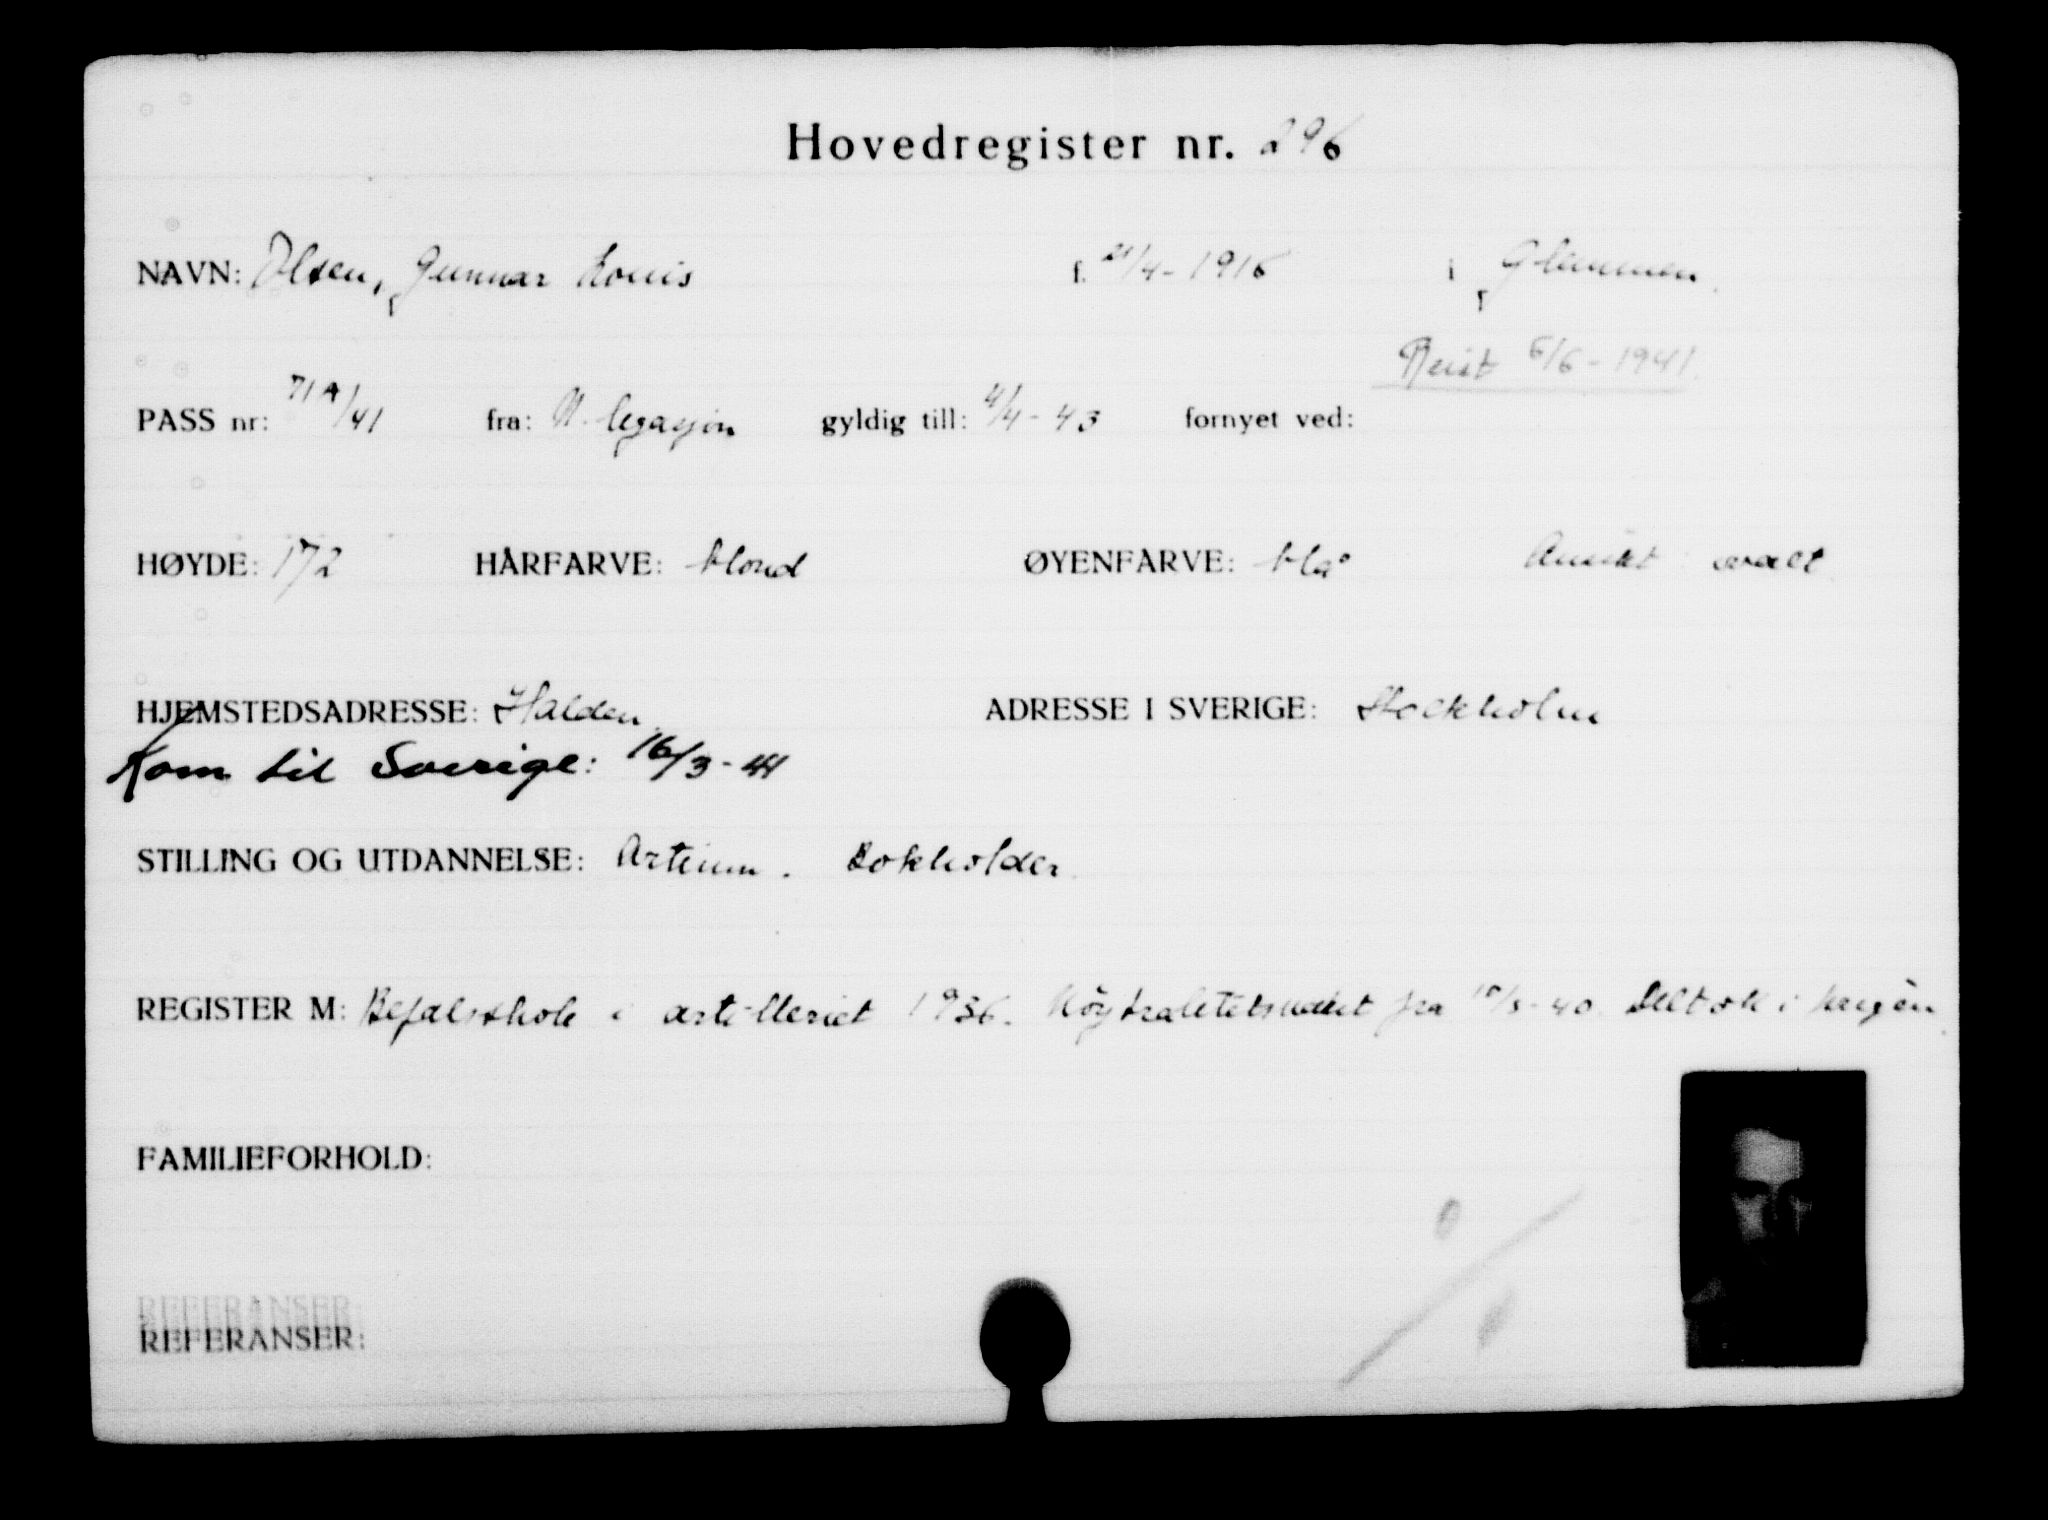 Hovedregister nr. 296
NAVN: Olsen, Gunnar Louis f. 21/4-1916 i Glemmen.
Reist 5/6-1941.
PASS nr: 71A/41 fra: N. legasjon gyldig till: 4/4-43 fornyet ved:
HØYDE: 172 HÅRFARVE: blond ØYENFARVE: blå Ansikt ovalt
HJEMSTEDSADRESSE: Halden. ADRESSE I SVERIGE: Stockholm
Kom til Sverige: 16/3-41
STILLING OG UTDANNELSE: Artium. Bokholder.
REGISTER M: Befalsskole i artilleriet 1936. Nöytralitetsvakt fra 10/3-40. Deltok i krigen.
FAMILIEFORHOLD:
REFERANSER:
REFERANSER: